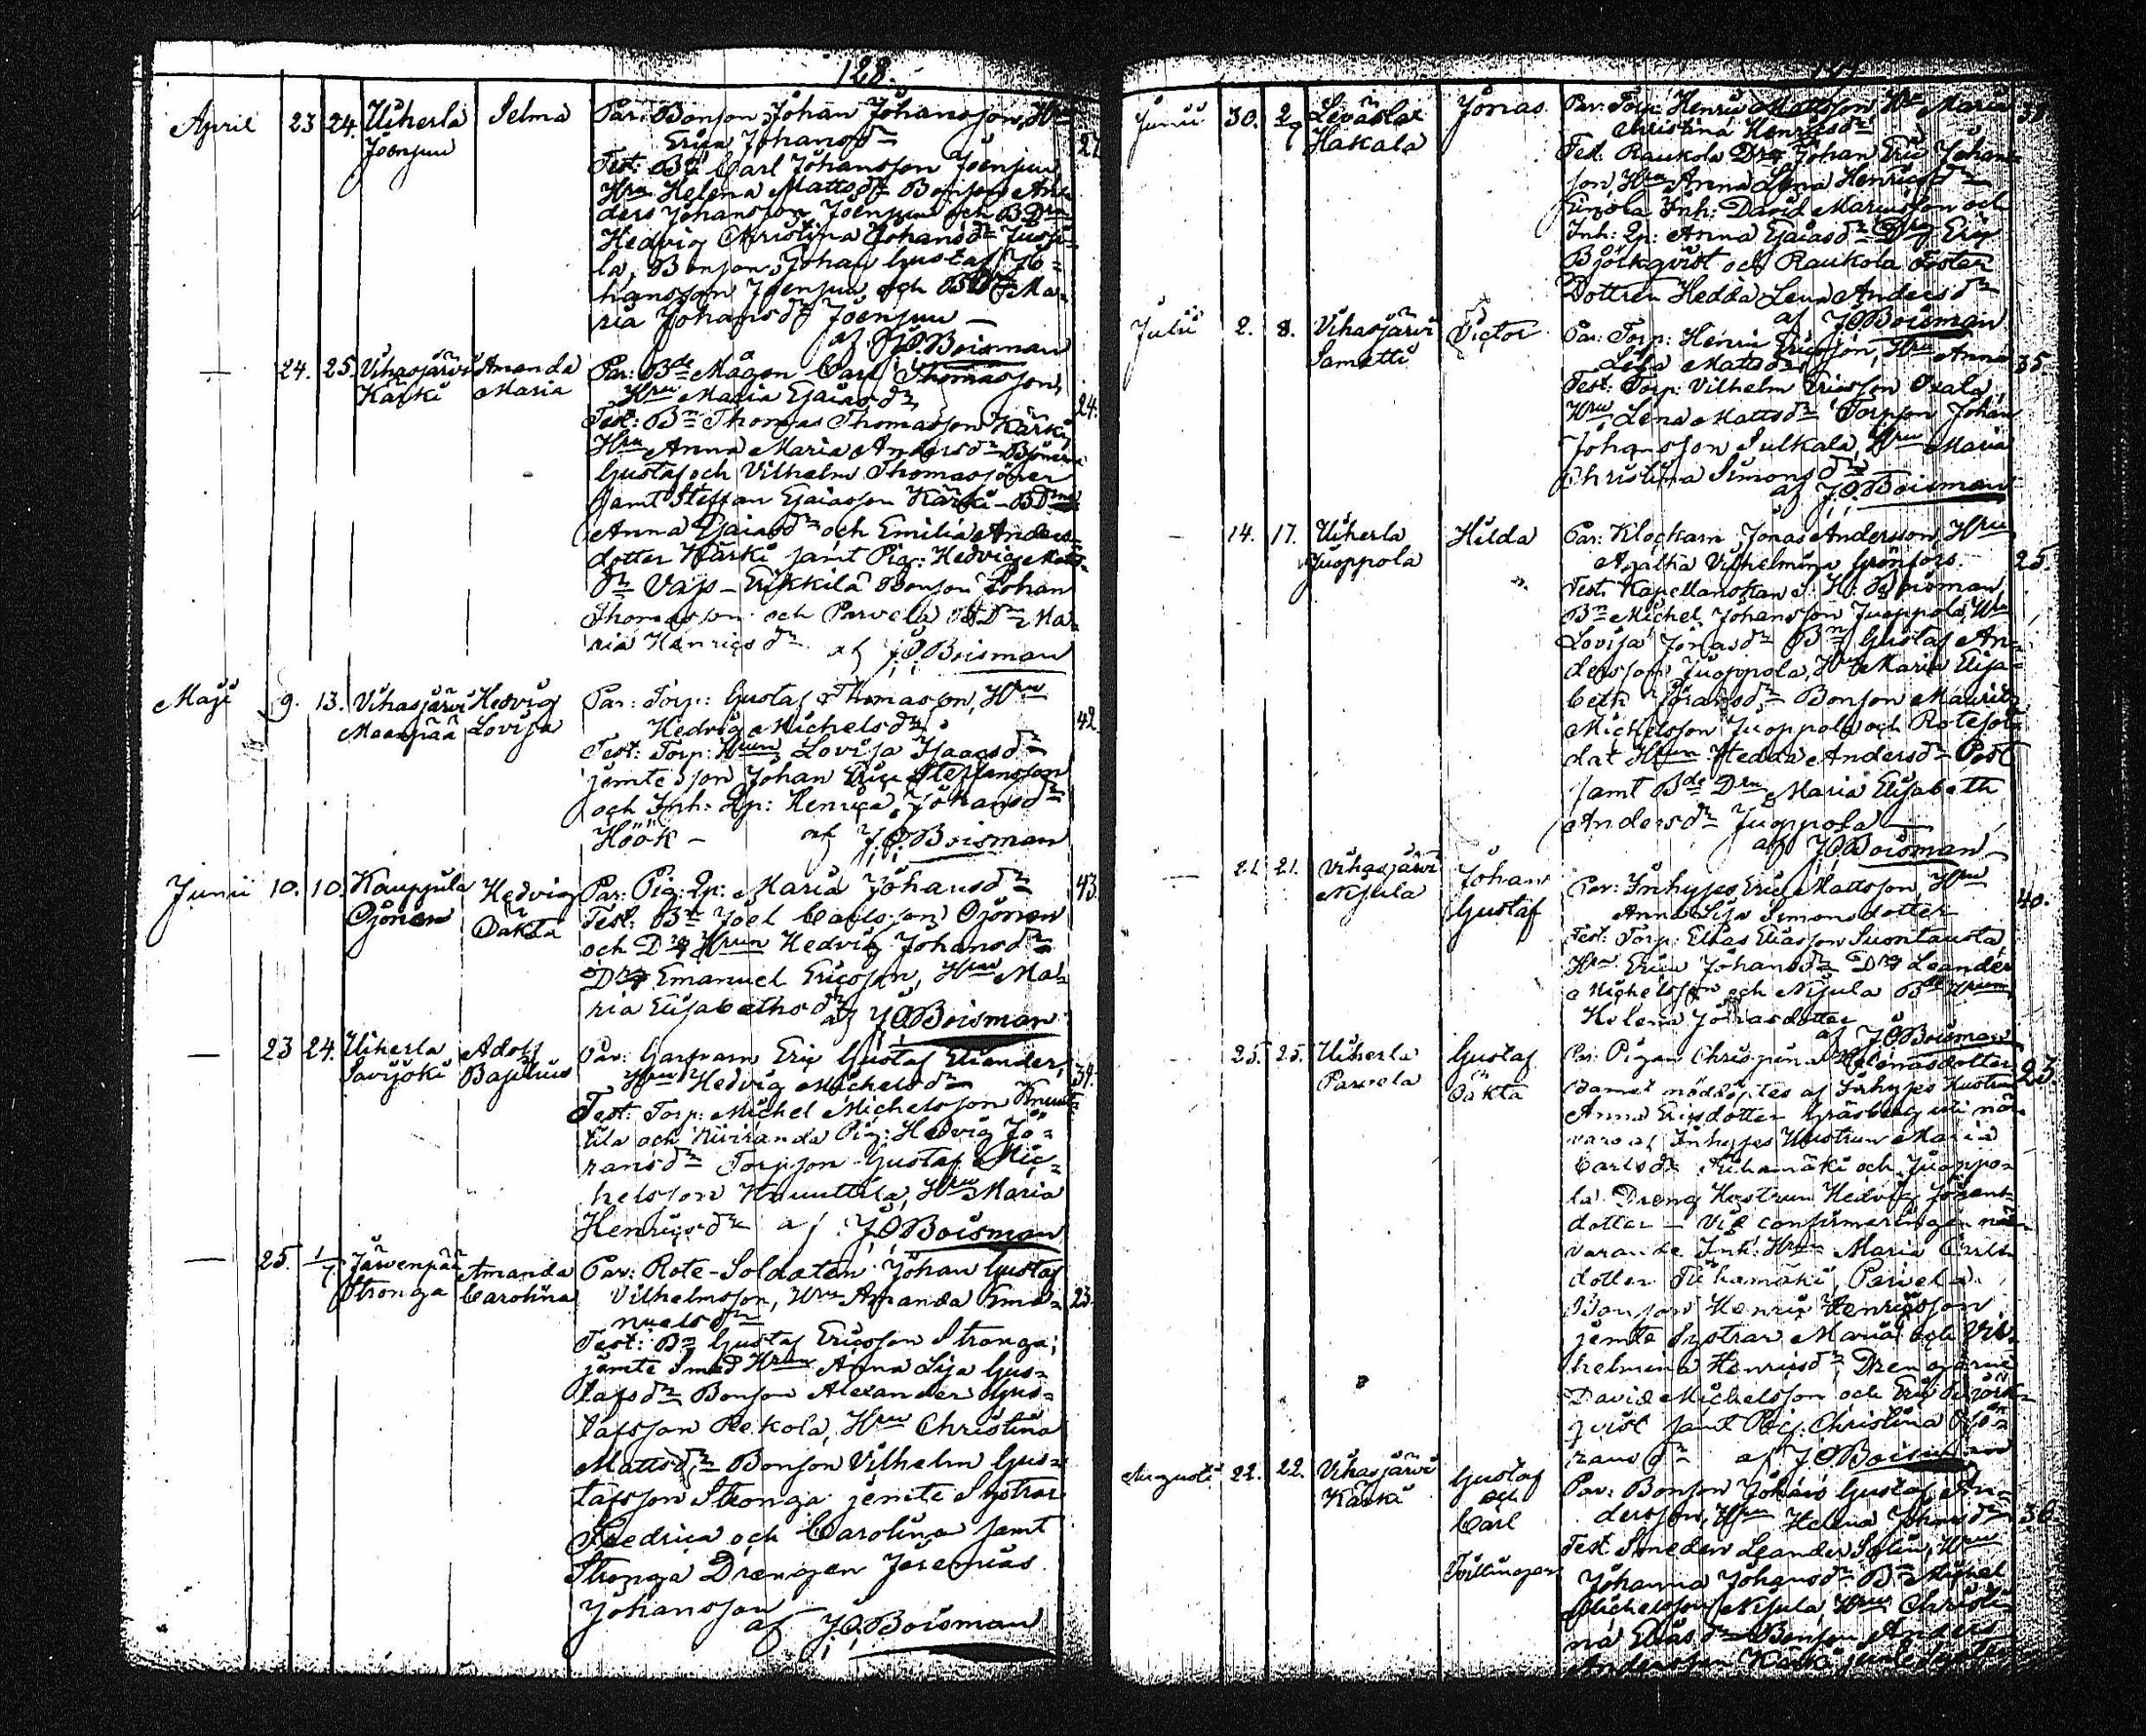 128.
April 23 24. Uiherla Selma Par: Bonson Johan Johansson, Hru
Joenjuu Erica Johansdr 27
Test: Bn Carl Johansson Joenjuu
Hru Helena Mattsdr Bonson An-
ders Johansson Joenjuu och BDrn
Hedvig Christina Johansdr Jussi-
la, Bonson Johan Gustaf Jo-
hansson Joenjuu och BDr Ma-
ria Johansdr Joenjuu —
af J.O.Boisman
— 24. 25. Vihasjärvi Amanda Par: Bde Mågen Carl Thomasson,
Kärki Maria Hru Maria Esaiasdr 24.
Test: Bn Thomas Thomasson Kärki,
Hru Anna Maria Andersdr Bsönerna
Gustaf och Vilhelm Thomassöner
samt Steffan Esaiasson Kärki – BDrna
Anna Esaiasdr och Emilia Anders-
dotter Kärki samt Pig: Hedvig Matts-
dr Vaps – Erikkilä Bonson Johan
Thomasson och Parvela BDr Ma-
ria Henricsdr af J.O.Boisman
Maji 9. 13. Vihasjärvi Hedvig Par: Torp: Gustaf Thomasson, Hru
Maanpää Lovisa Hedvig Michelsdr 42
Test: Torp: Hrun Lovisa Isaacsdr
jemte son Johan Eric Steffansson
och Inh: Qp: Henrica Johansdr
Höök – af J.O.Boisman
Junii 10. 10. Kauppula Hedvig Par: Pig: Qp: Maria Johansdr 43.
Ojönen Oäkta Test: Bn Joel Carlsson Ojönen
och Drg Hrun Hedvig Johansdr
Drg Emanuel Ericsson, Hru Ma-
ria Elisabethsdr
af J.O.Boisman
— 23 24. Uiherla Adolf Par: Garfvarn Eric Gustaf Eliander,
Savijoki Baptius Hru Hedvig Michelsdr 34.
Test: Torp: Michel Michelsson Knuut-
tila och Kiiranda Pig: Hedvig Jö-
ransdr Torpson Gustaf Mic-
helsson Knuuttila, Hru Maria
Henricsdr af J.O.Boisman
— 25. 1/7 Järvenpää Amanda Par: Rote-Soldaten Johan Gustaf
Stronga Carolina Vilhelmsson, Hru Amanda Ema- 23.
nuelsdr
Test: Bn Gustaf Ericsson Stronga,
jemte Smed Hrun Anna Lisa Gus-
tafsdr Bonson Alexander Gus-
tafsson Rekola, Hru Christina
Mattsdr Bonson Vilhelm Gus-
tafsson Stronga jemte Systrar
Fredrica och Carolina samt
Stronga Drengen Jeremias
Johansson
af J.O.Boisman
Junii 30. 2/7 Leväslax Jonas Par: Torp: Henric Mattsson Hru Maria 38
Hakala Christina Henricsdr
Test. Raukola Drg Johan Eric Johans-
son, Hru Anna Lena Henricsdr
Inh: David Mariasson och
Inh: Qp: Anna Esaiasdr Drg Eric
Björkqvist och Raukola Foster
Dottren Hedda Lena Andersdr
af J.O.Boisman
Julii 2. 8. Vihasjärvi Victor Par: Torp: Henric Ericsson, Hru Anna
Sametti Lisa Mattsdr 35.
Test: Torp: Vilhelm Ericsson Oxala,
Hru Lena Mattsdr Torpson Johan
Johansson Sulkala, Hru Maria
Christina Simonsdr
af J.O.Boisman
– 14. 17. Uiherla Hilda Par: Klockarn Jonas Andersson, Hru
Juoppola Agatha Vilhelmina Grönfors. 25.
Test. Kapellanskan S: H: Boisman,
Bn Michel Johansson Juoppola, Hru
Lovisa Jonasdr Bn Gustaf An-
dersson Juoppola, Hru Maria Elisa-
beth Jöransdr Bonson Maurits
Michelsson Juoppola och Rotesol-
dat Hrun Hedda Andersdr Post
samt Bde Drn Maria Elisabeth
Andersdr Juoppola —
af J.O.Boisman
— 21. 21. Vihasjärvi Johan Par: Inhyses Eric Mattsson Hru
Nisula Gustaf Anna Lisa Simonsdotter 40.
Test: Torp: Elias Eliasson Suontausta,
Hru Erica Johansdr Drg Leander
Michelsson och Nisula Bde Hrun
Helena Jonasdotter
af J.O.Boisman
25. 25. Uiherla Gustaf Par: Pigan Christina Helenasdotter 23.
Parvela Oäkta Barnet nöddöptes af Inhyses Hustrun
Anna Ericsdotter Gräsberg uti när-
varo af Inhyses Hustrun Maria
Carlsdr Tiihamäki och Juoppo-
la Dreng Hustrun Hedvig Jörans-
dotter – Vid confirmeringen när-
varande Inh: Hrun Maria Carls-
dotter Tiihamäki, Parvela
Bonson Henric Henricsson
jemte Systrar Maria och Vil-
helmina Henricsdr, Drengarne
David Michelsson och Eric Björk-
qvist samt Pig: Christina Jö-
ransdr af J.O.Boisman
Augusti 22. 22. Vihasjärvi Gustaf Par: Bonson Johan Gustaf An-
Kärki och dersson, Hru Helena Johansdr 36.
Carl Test. Smeden Leander Salin, Hru
Tvillingar Johanna Johansdr Bn Michel
Michelsson Nisula, Hru Christi-
na Eliasdr Bonson Anders
Andersson Kärki